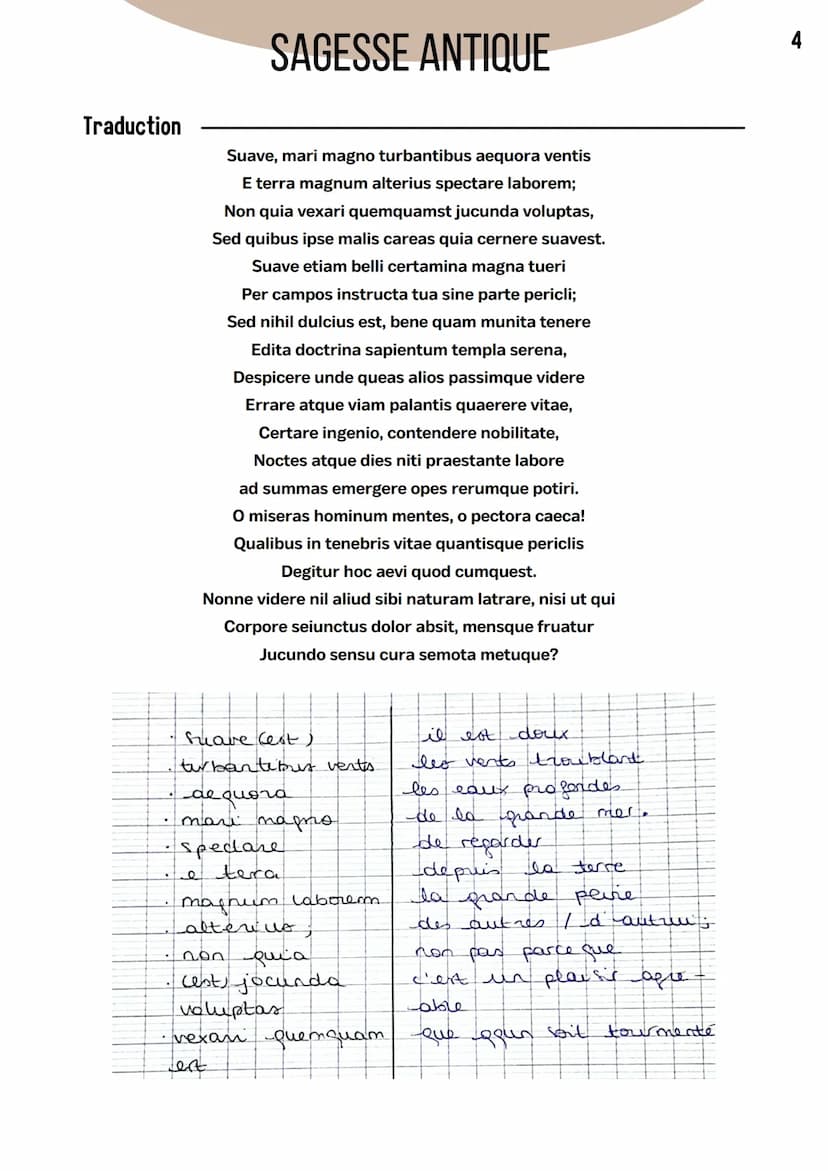 SAGESSE ANTIQUE
4
Traduction
Suave, mari magno turbantibus aequora ventis
E terra magnum alterius spectare laborem;
Non quia vexari quemquamst jucunda voluptas,
Sed quibus ipse malis careas quia cernere suavest.
Suave etiam belli certamina magna tueri
Per campos instructa tua sine parte pericli;
Sed nihil dulcius est, bene quam munita tenere
Edita doctrina sapientum templa serena,
Despicere unde queas alios passimque videre
Errare atque viam palantis quaerere vitae,
Certare ingenio, contendere nobilitate,
Noctes atque dies niti praestante labore
ad summas emergere opes rerumque potiri.
O miseras hominum mentes, o pectora caeca!
Qualibus in tenebris vitae quantisque periclis
Degitur hoc aevi quod cumquest.
Nonne videre nil aliud sibi naturam latrare, nisi ut qui
Corpore seiunctus dolor absit, mensque fruatur
Jucundo sensu cura semota metuque?
· Suave (est) il est doux
· turbantibus ventis les vents troublant
· aequora les eaux profondes
· mari magno de la grande mer.
· spectare de regarder
· e tera depuis la terre
· magnum laborem la grande peine
· alterius; des autres / d'autrui;
· non quia non pas parce que
· (est) jocunda c'est un plaisir agré-
voluptas -able
· vexari quemquam que qqun soit tourmenté
est